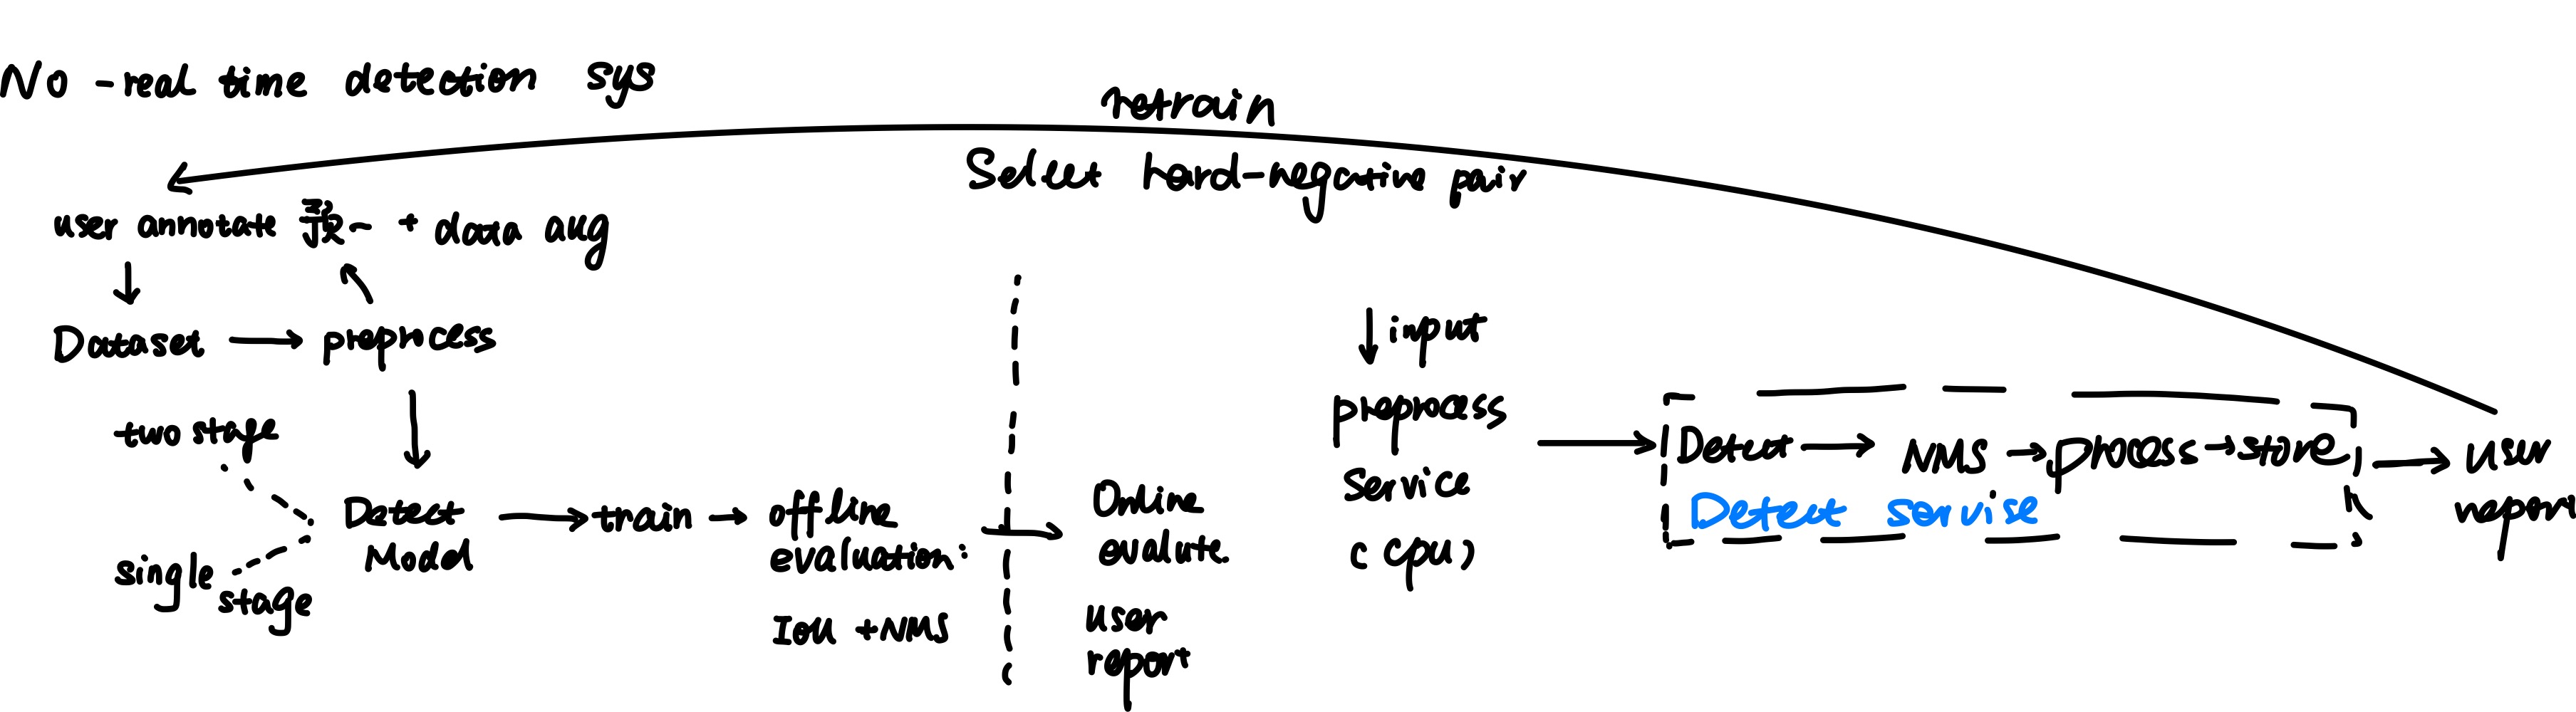 No - real time detection sys
retrain
Select hard-negative pair
user annotate + data aug
Dataset
preprocess
two stage
single
stage
Detect
Model
train
offline
evaluation:
IoU + NMS
Online
evalute.
user
report
input
preprocess
Service
( cpu )
Detect
NMS
process
store
Detect servise
user
report